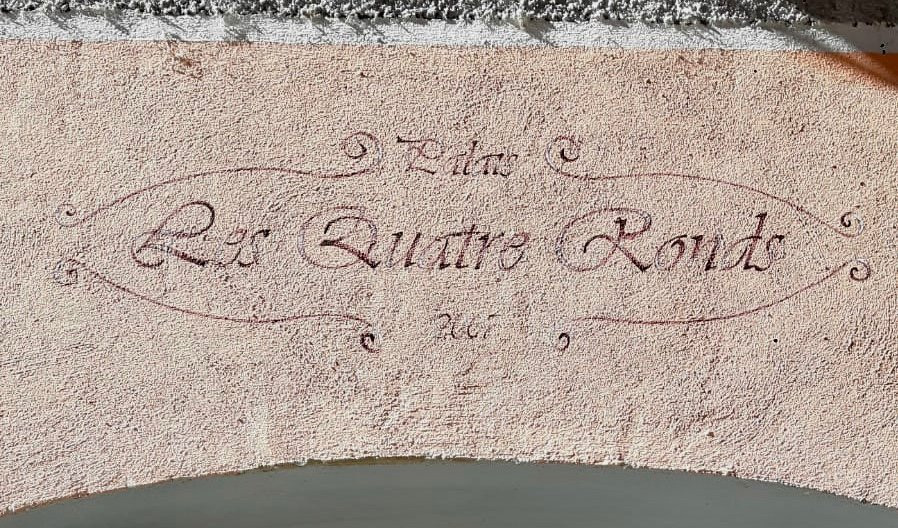 Palais
Les Quatre Ronds
2007